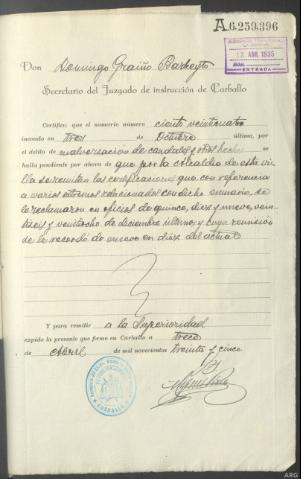 A.6.259.396
ABR. 1935
ENTRADA
Don Domingo
Secretario del Juzgado de instrucción de Carballo
Certifico: que el sumario número ciento veinticuatro
incoado en tres de Octubre último, por
el delito de malversación de caudales y otros hechos
se halla pendiente por ahora de que por la Alcaldía de esta vi-
lla se remitan las certificaciones que con referencia
a varios extremos relacionados con dicho sumario, se
le reclamaron en oficios de quince, diez y nueve, vein-
tiseis y veintiocho de diciembre último y cuya remisión
se le recordó de nuevo en diez del actual
Y para remitir a la Superioridad
expido la presente que firmo en Carballo a trece
de Abril de mil novecientos treinta y cinco
CARBALLO
ARG